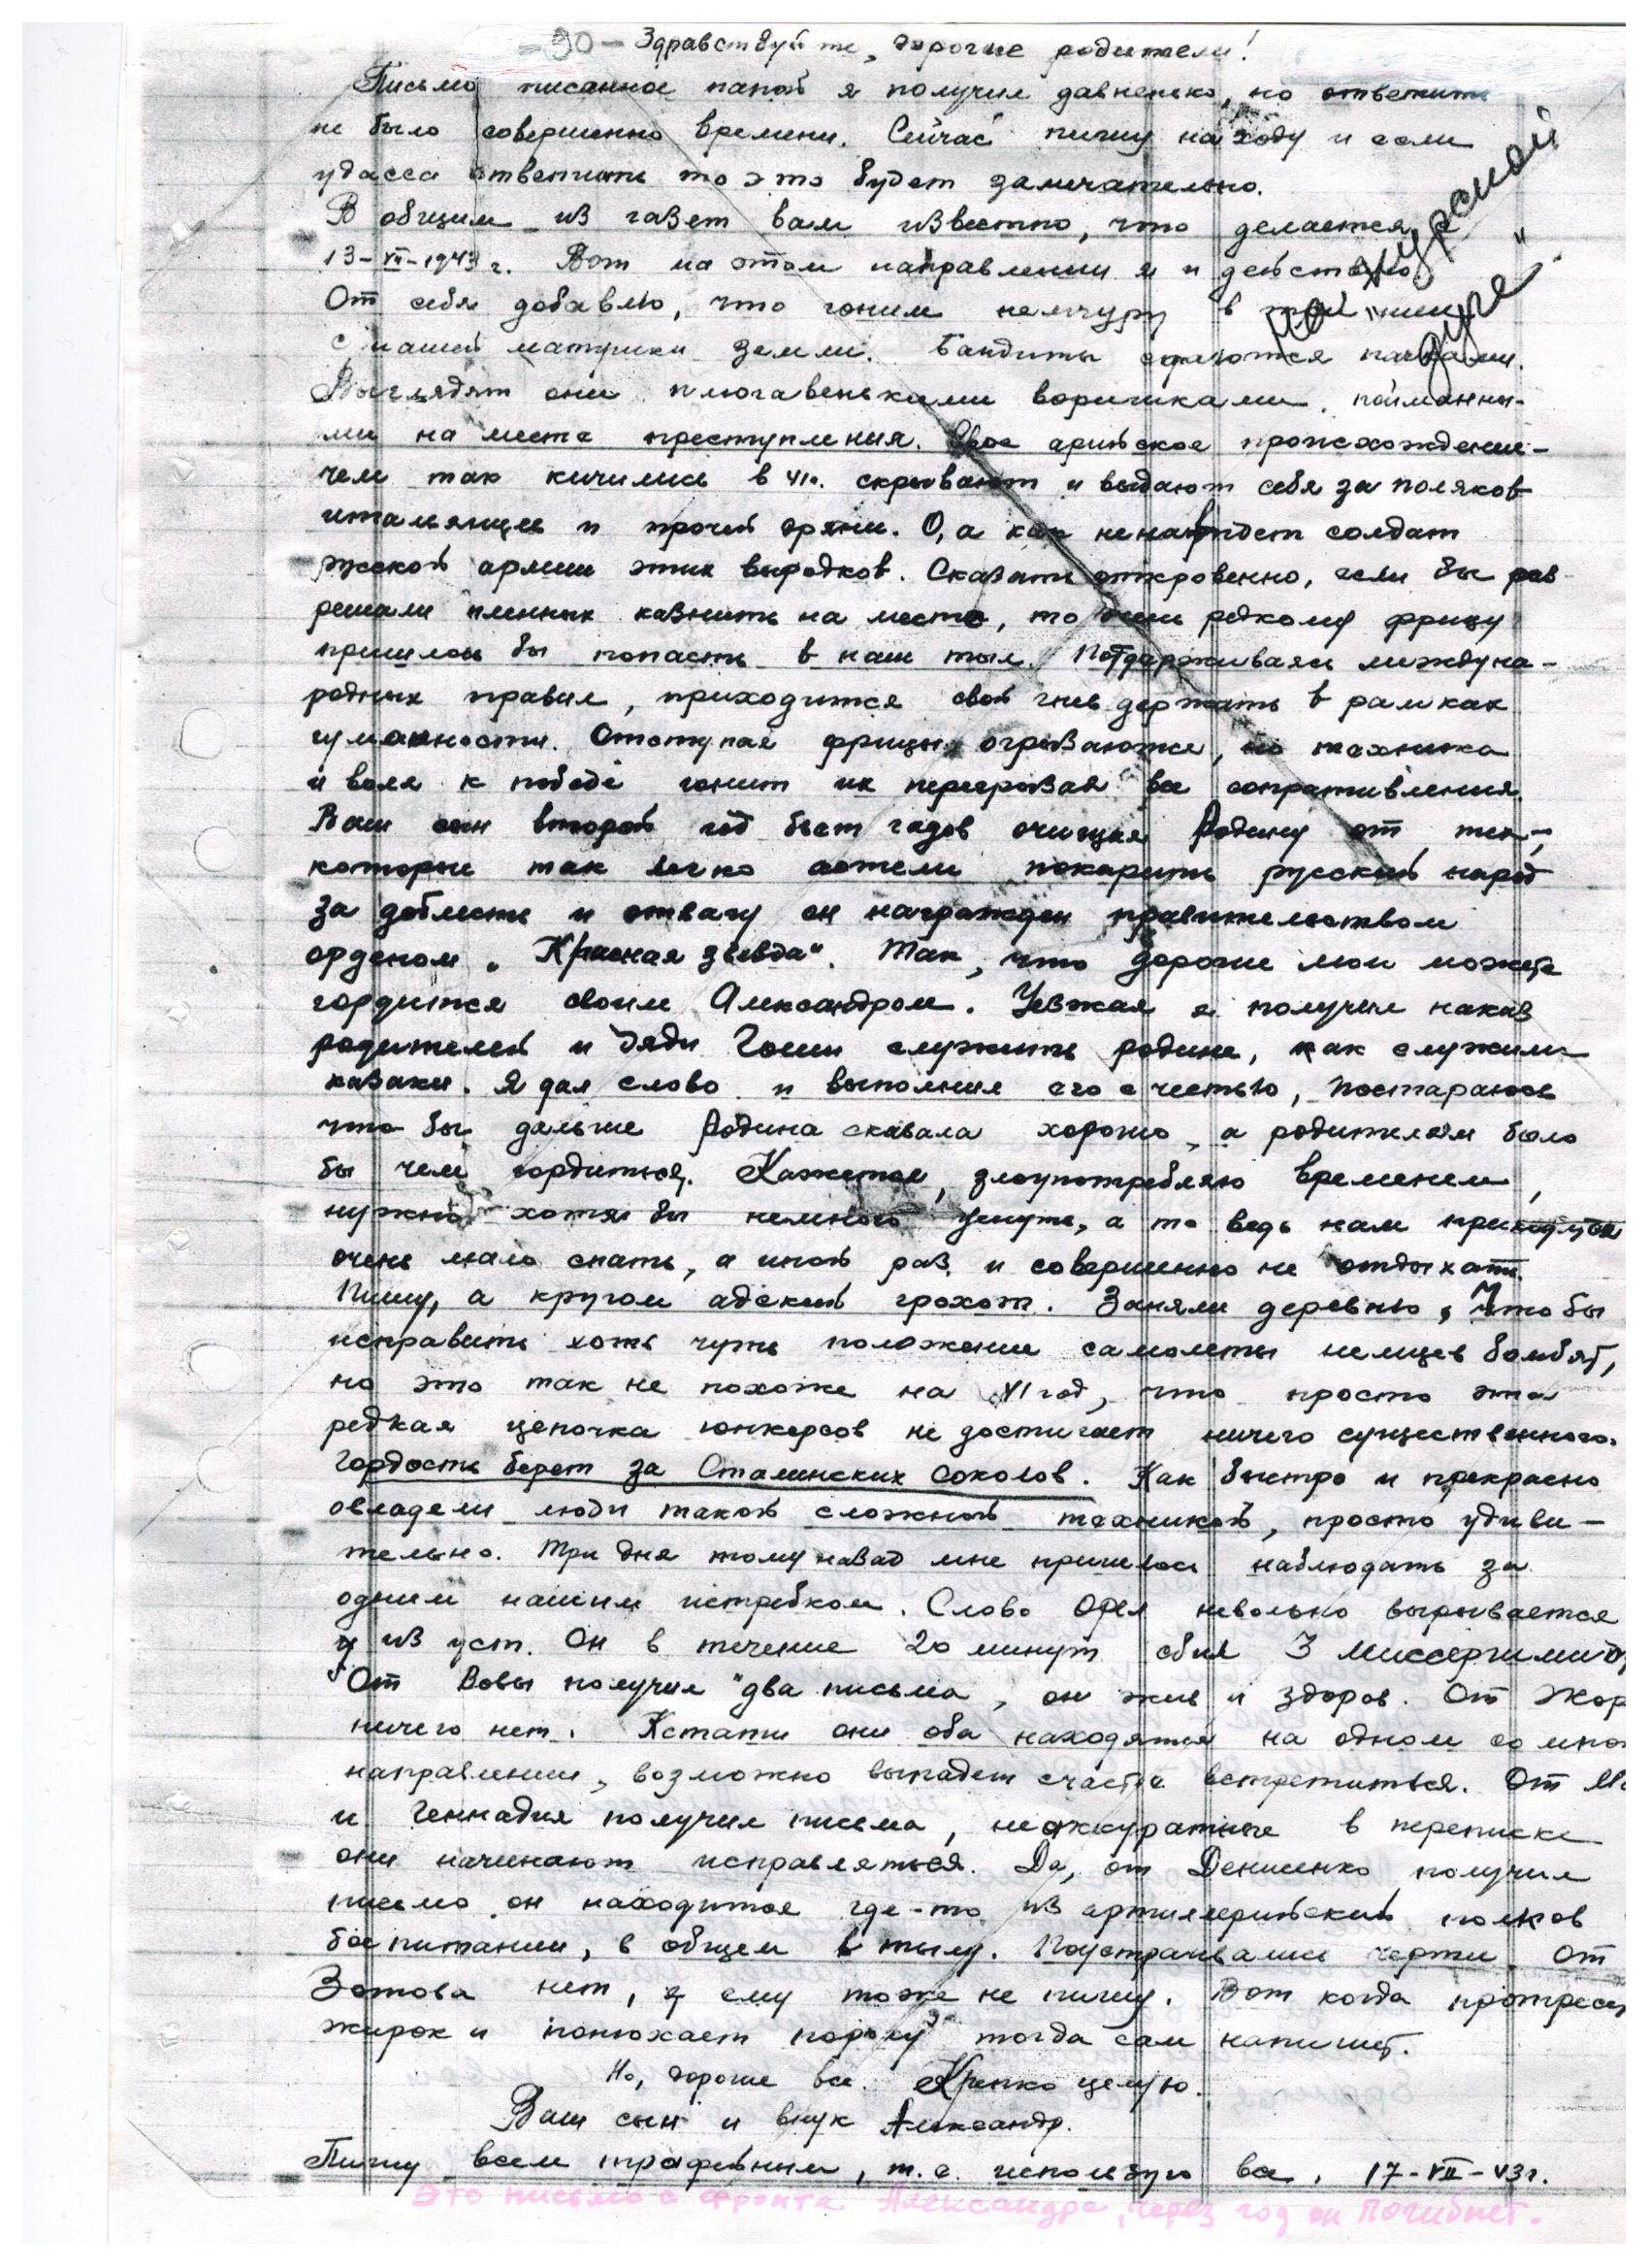 - 90 - Здравствуйте, дорогие родители!
Письмо писанное папой я получил давненько, но ответить
не было совершенно времени. Сейчас пишу на ходу и если
удасса ответить то это будет замечательно.
В общим из газет вам известно, что делается с
13-VII-1943 г. Вот на этом направлении я и действую
на "Курской
дуге"
От себя добавлю, что гоним немчуру в три шеи
с нашей матушки земли. Бандиты сдаются пачками.
Выглядят они плюгавенькими воришками, пойманны-
ми на месте преступления. Свое арийское происхождение-
чем так кичились в 41г. скрывают и выдают себя за поляков
итальянцев и прочей дряни. О, а как ненавидет солдат
русской армии этих выродков. Сказать откровенно, если бы раз
решали пленных казнить на месте, то редкому фрицу
пришлось бы попасть в наш тыл. Потдерживаясь междуна-
родных правил, приходится свой гнев держать в рамках
гуманности. Отступая фрицы огрызаются, но техника
и воля к победе гонит их перегрызая все сопративления.
Ваш сын второй год бьет гадов очищая Родину от тех,
которые так легко хотели покарить русский народ
за доблесть и отвагу он награжден правительством
орденом „Красная звезда“. Так, что дорогие мои можете
гордится своим Александром. Уезжая я получил наказ
родителей и дяди Гоши служить родине, как служили
казаки. Я дал слово и выполнил его с честью, постараюсь
что бы дальше Родина сказала хорошо, а родителям было
бы чем гордиться. Кажется, злоупотребляю временем,
нужно хотя бы немного уснуть, а то ведь нам приходится
очень мало спать, а иной раз и совершенно не отдыхать.
Пишу, а кругом адский грохот. Заняли деревню, что бы
исправить хоть чуть положение самолеты немцев бомбят,
но это так не похоже на 41 год, что просто эта
редкая цепочка юнкерсов не достигает ничего существенного.
Гордость берет за Сталинских соколов. Как быстро и прекрасно
овладели люди такой сложной техникой, просто удиви-
тельно. Три дня тому назад мне пришлось наблюдать за
одним нашим истребком. Слово Орел невольно вырывается
из уст. Он в течение 20 минут сбил 3 Миссершмид
От Вовы получил два письма, он жив и здоров. От Жор
ничего нет. Кстати они оба находятся на одном со мной
направлении, возможно выпадет счастье встретиться. От
и Геннадия получил письма, неаккуратные в переписке
они начинают исправляться. Да, от Денисенко получил
письмо он находится где-то из артиллерийский полков
боепитании, в общем в тылу. Поустраивались черти. От
Зотова нет, я ему тоже не пишу. Вот когда протресет
жирок и понюхает пороху тогда сам напишет.
Но, дорогие все. Крепко целую.
Ваш сын и внук Александр.
Пишу всем трафейным, т.е. использую все. 17-VII-43г.
Это письмо с фронта Александра, через год он погибнет.